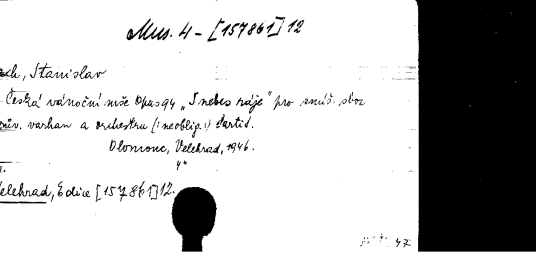 Mus. 4 - [157861] 12
ch, Stanislav
Česká vánoční mše Opus 94 „S nebes ráje" pro smíš. sbor
prův. varhan a orchestru (: neoblig. :) Partit.
Olomouc, Velehrad, 1946.
4°
Velehrad, Edice [157861] 12.
47